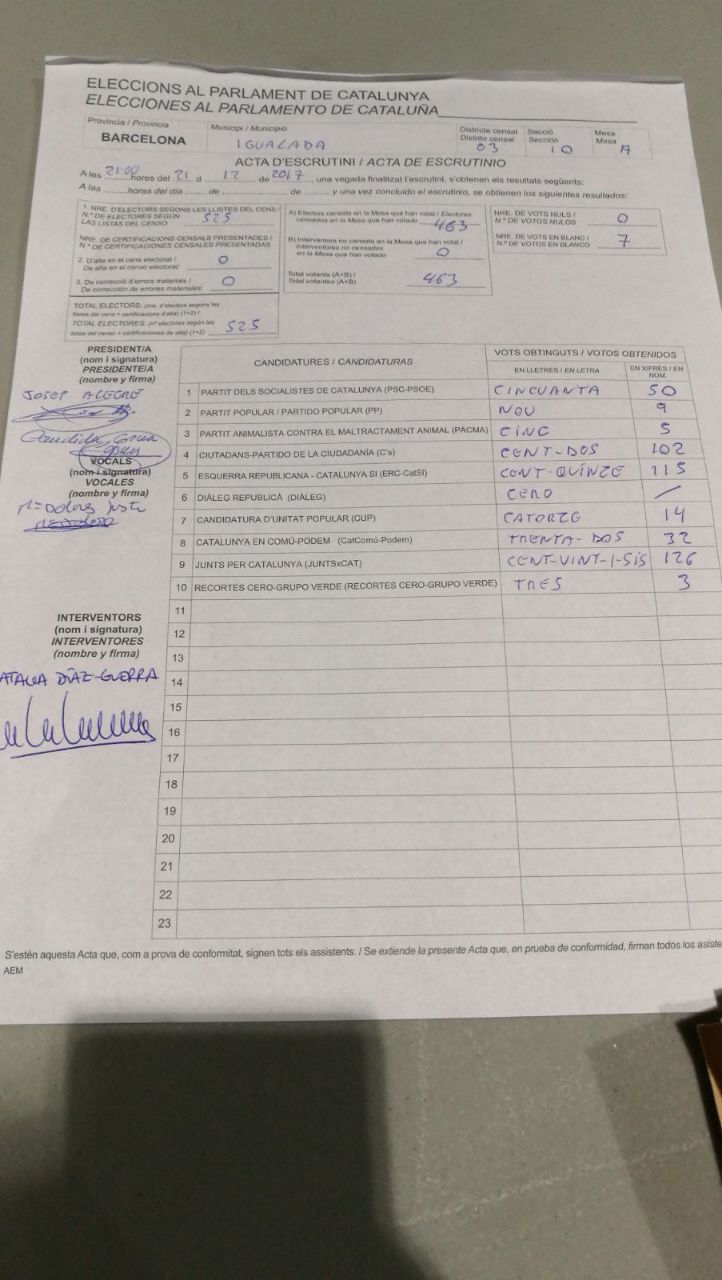 ELECCIONS AL PARLAMENT DE CATALUNYA
ELECCIONES AL PARLAMENTO DE CATALUÑA
Província / Provincia
BARCELONA
Municipi / Municipio
IGUALADA
Districte censal
Distrito censal
03
Secció
Sección
10
Mesa
Mesa
A
ACTA D'ESCRUTINI / ACTA DE ESCRUTINIO
A les 21:00 hores del 21 d 12 de 2017, una vegada finalitzat l'escrutini, s'obtenen els resultats següents:
A las ........ horas del día ........ de ........ de ........ y una vez concluido el escrutinio, se obtienen los siguientes resultados:
1. NRE. D'ELECTORS SEGONS LES LLISTES DEL CENS /
N.º DE ELECTORES SEGÚN
LAS LISTAS DEL CENSO
525
NRE. DE CERTIFICACIONS CENSALS PRESENTADES /
N.º DE CERTIFICACIONES CENSALES PRESENTADAS
2. D'alta en el cens electoral /
De alta en el censo electoral:
0
3. De correcció d'errors materials /
De corrección de errores materiales:
0
TOTAL ELECTORS: (nre. d'electors segons les
llistes del cens + certificacions d'alta) (1+2) /
TOTAL ELECTORES: (nº electores según las
listas del censo + certificaciones de alta) (1+2)
525
A) Electors censats en la Mesa que han votat / Electores
censados en la Mesa que han votado
463
B) Interventors no censats en la Mesa que han votat /
Interventores no censados
en la Mesa que han votado
0
Total votants (A+B) /
Total votantes (A+B)
463
NRE. DE VOTS NULS /
N.º DE VOTOS NULOS
0
NRE. DE VOTS EN BLANC /
N.º DE VOTOS EN BLANCO
7
PRESIDENT/A
(nom i signatura)
PRESIDENTE/A
(nombre y firma)
JOSEP ALEGRE
VOCALS
(nom i signatura)
VOCALES
(nombre y firma)
Mª Dolors
INTERVENTORS
(nom i signatura)
INTERVENTORES
(nombre y firma)
ATALIA DÍAZ-GUERRA
CANDIDATURES / CANDIDATURAS
VOTS OBTINGUTS / VOTOS OBTENIDOS
EN LLETRES / EN LETRA
EN XIFRES / EN
NÚM.
1 PARTIT DELS SOCIALISTES DE CATALUNYA (PSC-PSOE) CINCUANTA 50
2 PARTIT POPULAR / PARTIDO POPULAR (PP) NOU 9
3 PARTIT ANIMALISTA CONTRA EL MALTRACTAMENT ANIMAL (PACMA) CINC 5
4 CIUTADANS-PARTIDO DE LA CIUDADANÍA (C's) CENT-DOS 102
5 ESQUERRA REPUBLICANA - CATALUNYA SI (ERC-CatSí) CENT-QUÍNZE 115
6 DIÀLEG REPUBLICÀ (DIÀLEG) CERO /
7 CANDIDATURA D'UNITAT POPULAR (CUP) CATORZE 14
8 CATALUNYA EN COMÚ-PODEM (CatComú-Podem) TRENTA-DOS 32
9 JUNTS PER CATALUNYA (JUNTSxCAT) CENT-VINT-I-SIS 126
10 RECORTES CERO-GRUPO VERDE (RECORTES CERO-GRUPO VERDE) TRES 3
11
12
13
14
15
16
17
18
19
20
21
22
23
S'estén aquesta Acta que, com a prova de conformitat, signen tots els assistents. / Se extiende la presente Acta que, en prueba de conformidad, firman todos los asiste
AEM